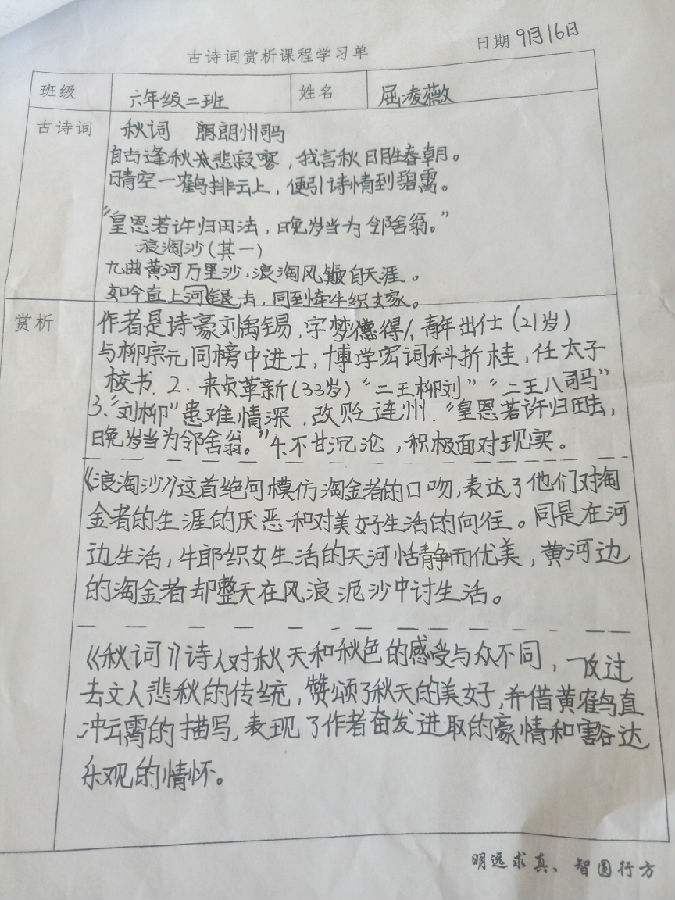 古诗词赏析课程学习单
日期 9月16日
班级 六年级二班 姓名 屈凌薇
古诗词 秋词 朗州司马
自古逢秋悲寂寥，我言秋日胜春朝。
晴空一鹤排云上，便引诗情到碧霄。
"皇恩若许归田法，晚岁当为邻舍翁。"
浪淘沙(其一)
九曲黄河万里沙，浪淘风簸自天涯。
如今直上河去，同到牵牛织女家。
赏析 作者是诗豪刘禹锡，字梦德得1、青年出仕(21岁)
与柳宗元同榜中进士，博学宏词科折桂，任太子
校书. 2. 永贞革新(33岁)"二王柳刘""二王八司马"
3."刘柳"患难情深，改贬连州."皇恩若许归田去，
晚岁当为邻舍翁。"4.不甘沉沦，积极面对现实。
《浪淘沙》这首绝句模仿淘金者的口吻，表达了他们对淘
金者的生涯的厌恶和对美好生活的向往。同是在河
边生活，牛郎织女生活的天河恬静而优美，黄河边
的淘金者却整天在风浪泥沙中讨生活。
《秋词》诗人对秋天和秋色的感受与众不同，一改过
去文人悲秋的传统，赞颂了秋天的美好，并借黄鹤直
冲云霄的描写，表现了作者奋发进取的豪情和豁达
乐观的情怀。
明远求真、智圆行方